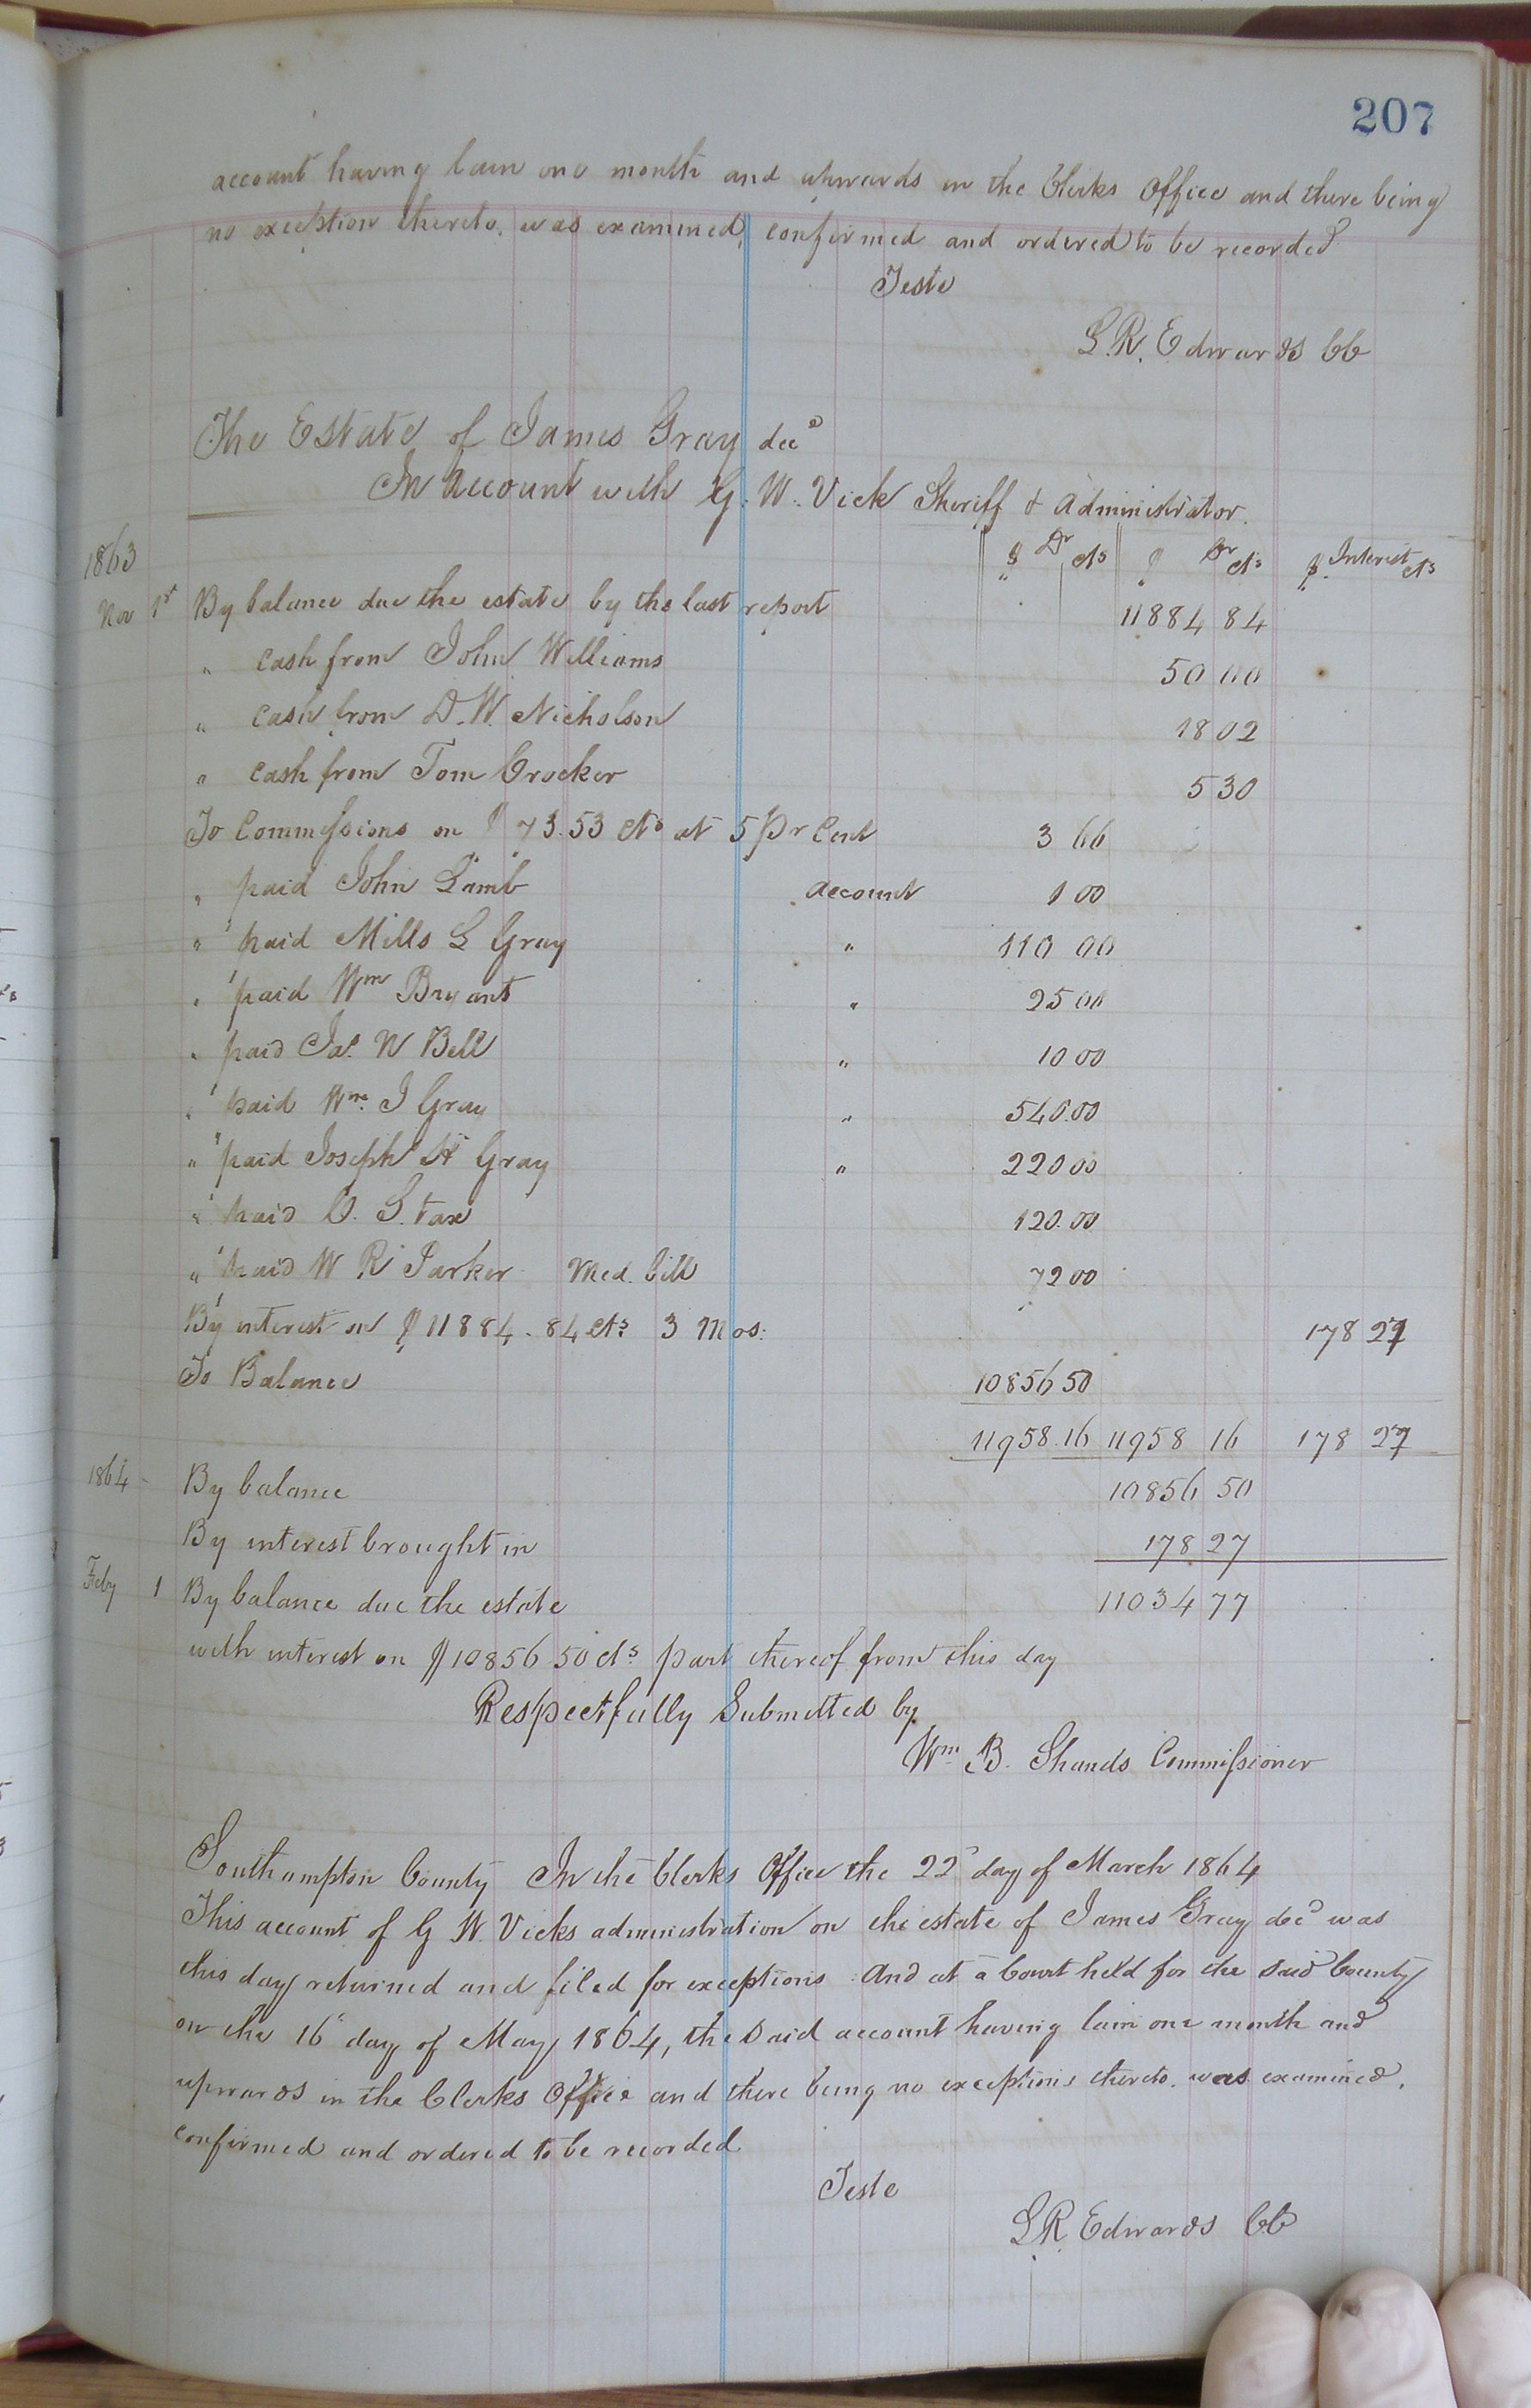 207
account having lain one month and upwards in the Clerks Office and there being
no exception thereto, was examined, confirmed and ordered to be recorded
Teste
L. R. Edwards CC
The Estate of James Gray decd
In Account with G. W. Vick Sheriff & Administrator.
1863 $ Dr cts $ Cr cts $ Interest cts
Nov 1st By balance due the estate by the last report 11884 84
" Cash from John Williams 50 00
" Cash from D. W. Nicholson 18 02
" Cash from Tom Crocker 5 30
To Commissions on $ 73.53 cts at 5 Pr Cent 3 66
" paid John Lamb account 1 00
" paid Mills L Gray " 110 00
" paid Wm Bryant " 25 00
" paid Jas. W Bell " 10 00
" paid Wm. J Gray " 540.00
" paid Joseph H Gray " 220 00
" paid C. S. tax 120.00
" paid W R Parker Med. bill 72 00
By interest on $ 11884.84 cts 3 Mos: 178 27
To Balance 10856 50
11958.16 11958 16 178 27
1864 By balance 10856 50
By interest brought in 178 27
Feby 1 By balance due the estate 11034 77
with interest on $ 10856 50 cts part thereof from this day
Respectfully Submitted by
Wm B. Shands Commissioner
Southampton County In the Clerks Office the 22d day of March 1864
This account of G W. Vicks administration on the estate of James Gray decd was
this day returned and filed for exceptions And at a Court held for the said County
on the 16th day of May 1864, the said account having lain one month and
upwards in the Clerks Office and there being no exceptions thereto. was examined,
confirmed and ordered to be recorded
Teste
L R. Edwards CC